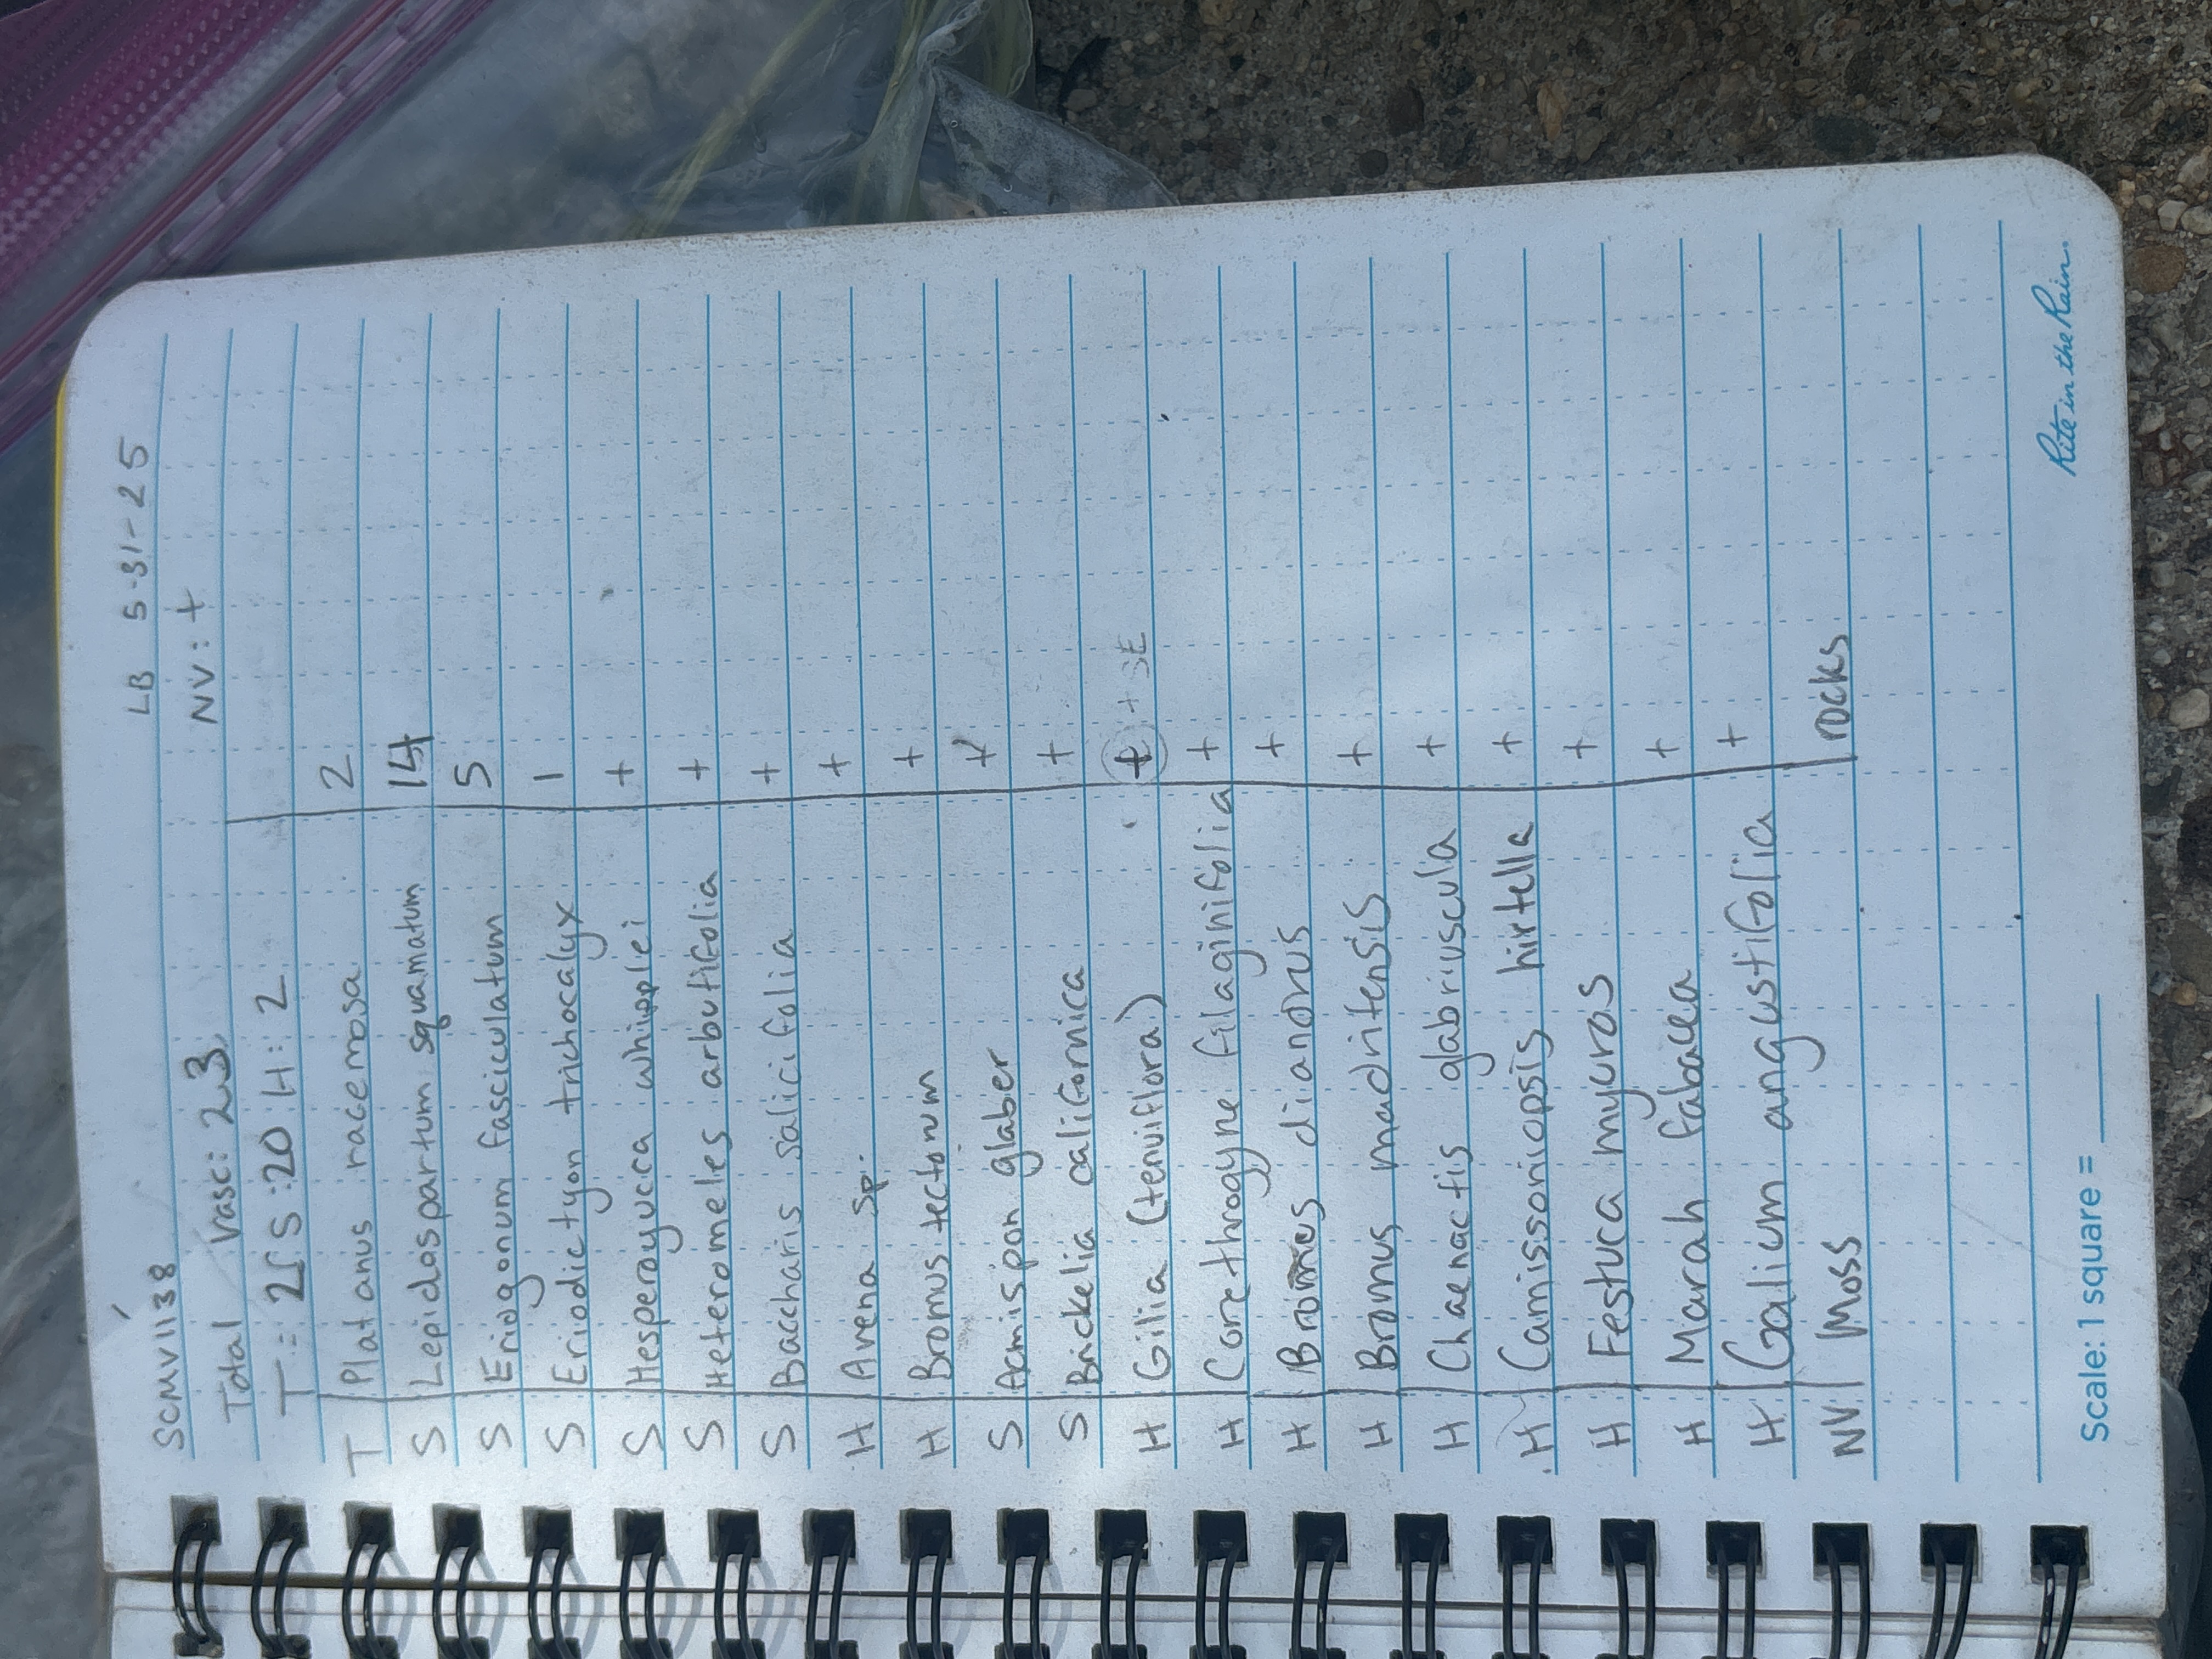 SCMV1138 LB 5-31-25
Total Vasc: 23 NV: +
T: 2 S: 20 H: 2
T Platanus racemosa 2
S Lepidospartum squamatum 14
S Eriogonum fasciculatum 5
S Eriodictyon trichocalyx 1
S Hesperoyucca whipplei +
S Heteromeles arbutifolia +
S Baccharis salicifolia +
H Avena sp. +
H Bromus tectorum +
S Acmispon glaber +
S Brickelia californica +
H Gilia (tenuiflora) + +
H Corethrogyne filaginifolia +
H Bromus diandrus +
H Bromus madritensis +
H Chaenactis glabriuscula +
H Camissoniopsis hirtella +
H Festuca myuros +
H Marah fabacea +
H Galium angustifolia +
NV Moss rocks
Scale: 1 square = ____ Rite in the Rain.